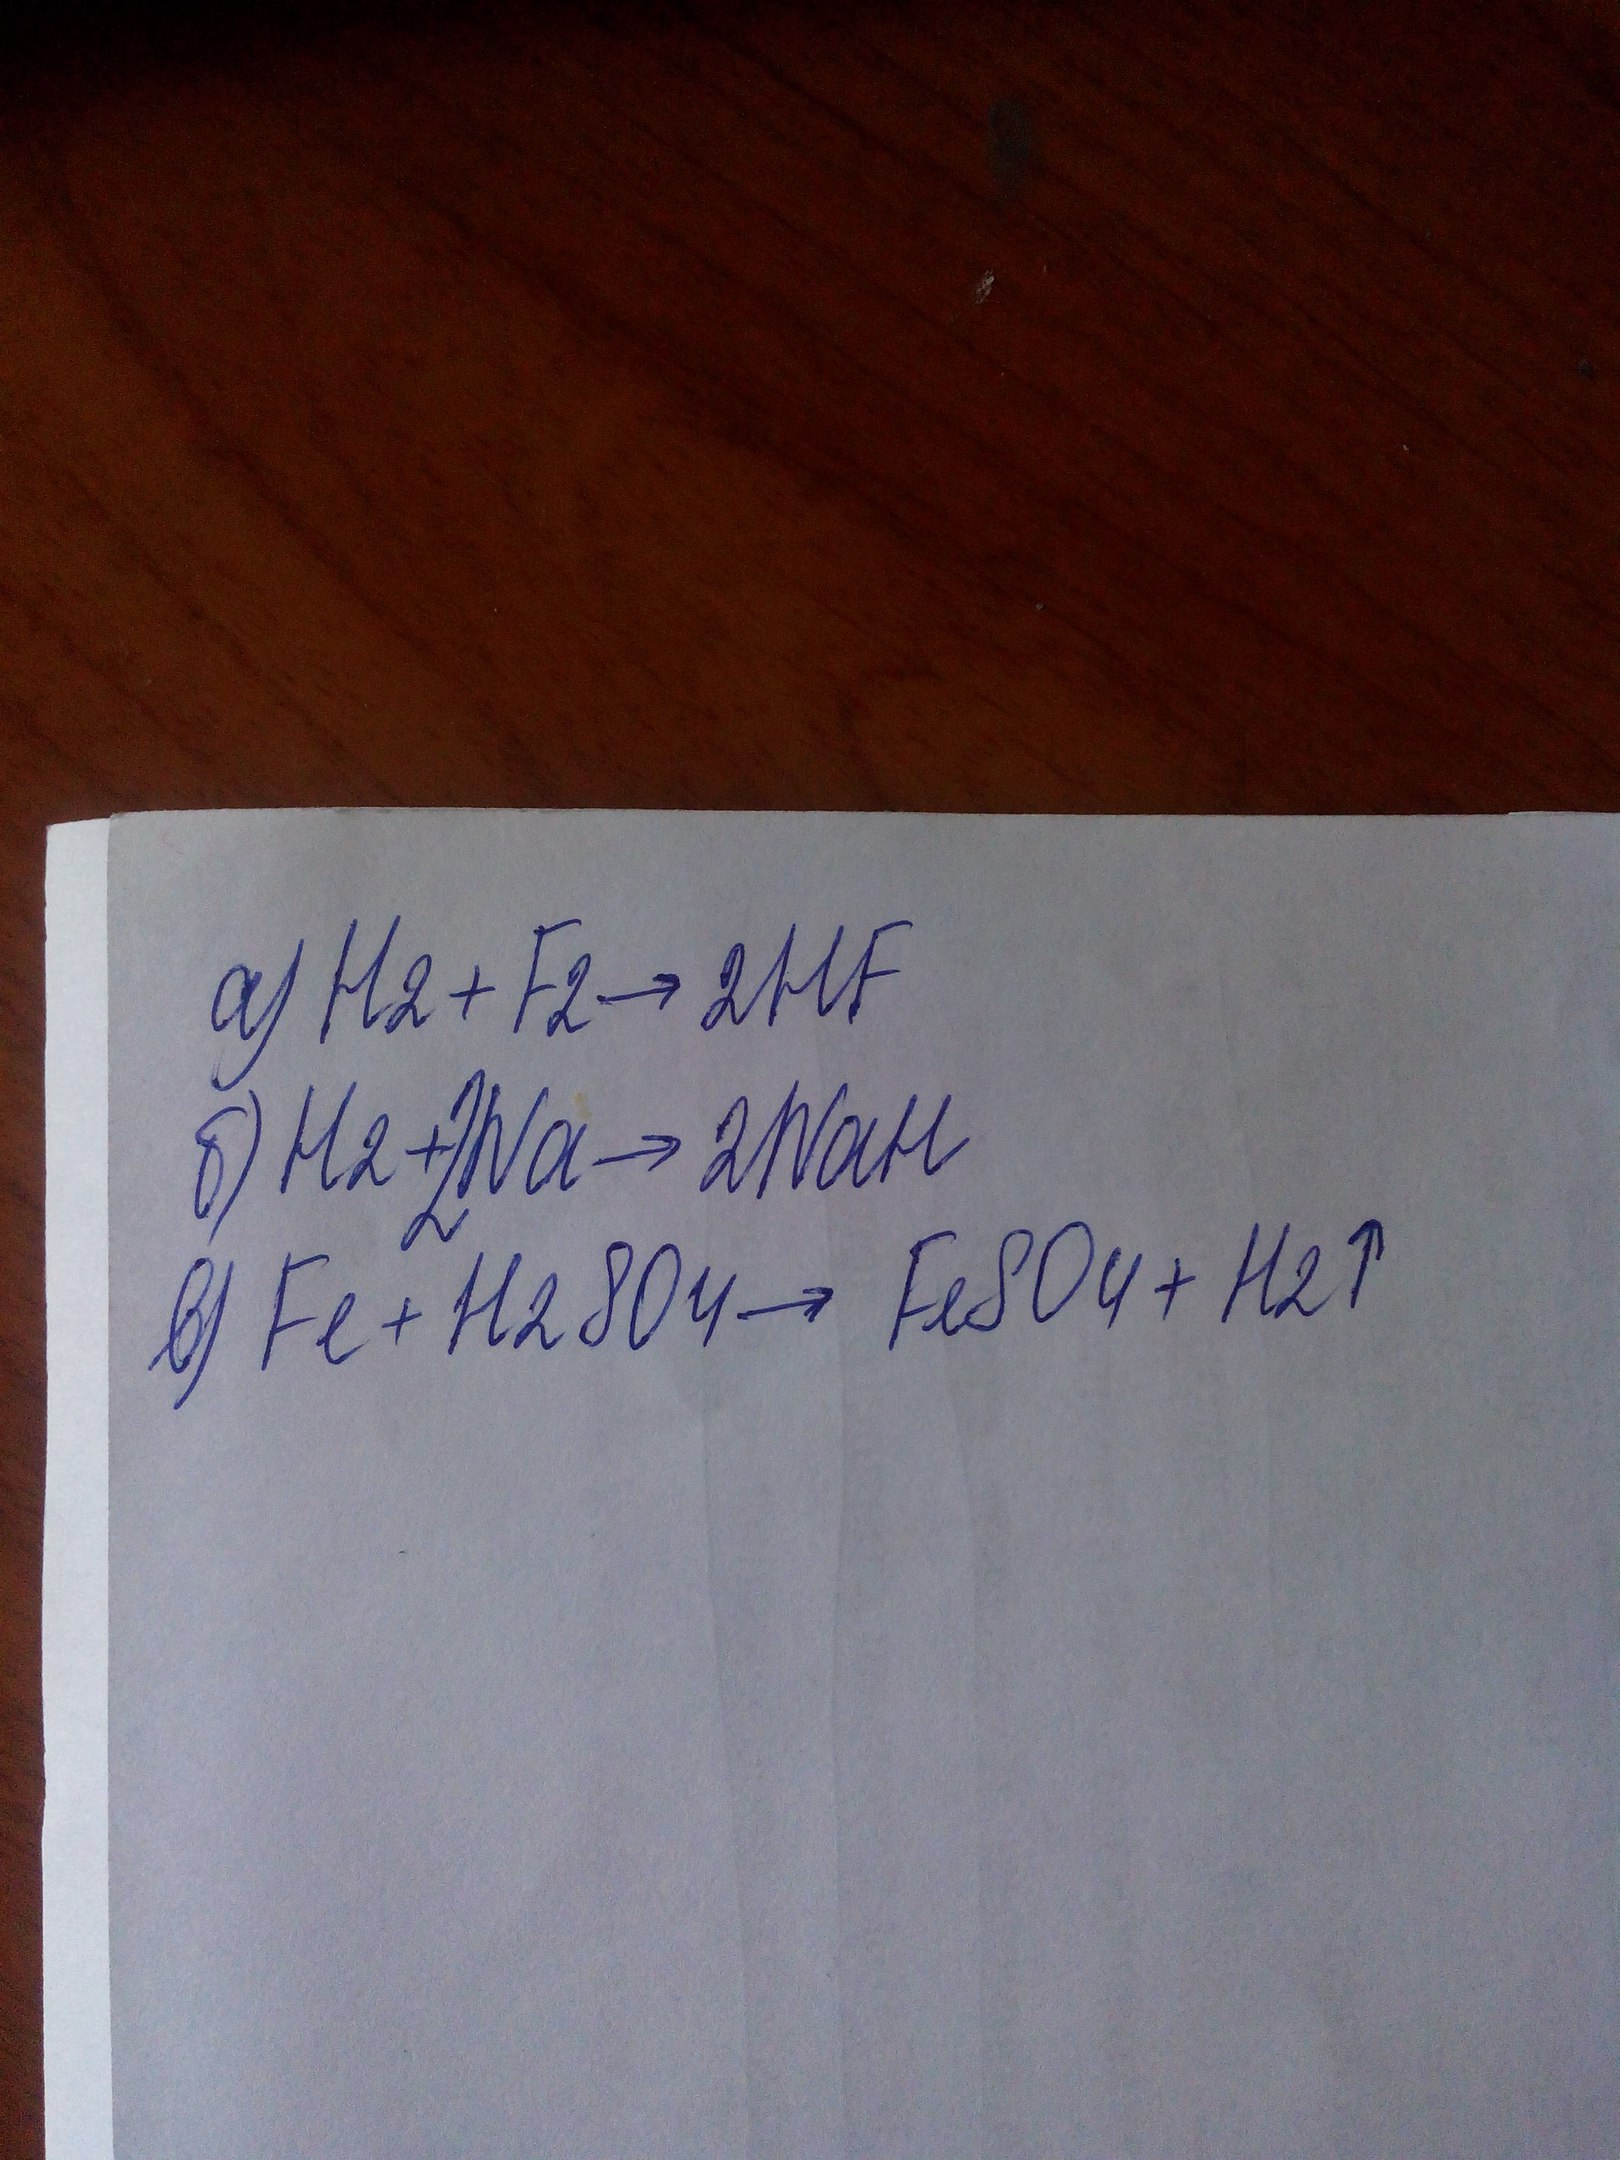 а) H2 + F2 → 2HF
б) H2 + 2Na → 2NaH
в) Fe + H2SO4 → FeSO4 + H2↑